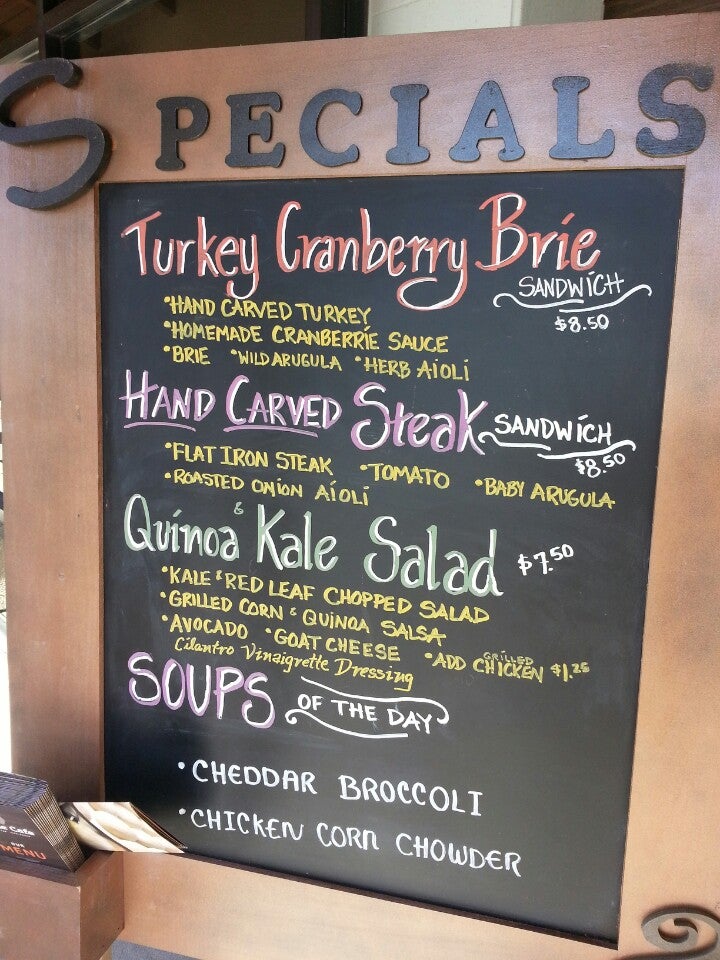 SPECIALS
Turkey Cranberry Brie
SANDWICH
$8.50
•HAND CARVED TURKEY
•HOMEMADE CRANBERRIE SAUCE
•BRIE •WILD ARUGULA •HERB AIOLI
HAND CARVED Steak SANDWICH
$8.50
•FLAT IRON STEAK •TOMATO •BABY ARUGULA
•ROASTED ONION AIOLI
Quinoa & Kale Salad $7.50
•KALE & RED LEAF CHOPPED SALAD
•GRILLED CORN & QUINOA SALSA
•AVOCADO •GOAT CHEESE •ADD GRILLED CHICKEN $1.25
Cilantro Vinaigrette Dressing
SOUPS OF THE DAY
•CHEDDAR BROCCOLI
•CHICKEN CORN CHOWDER
Cafe
OUR
MENU